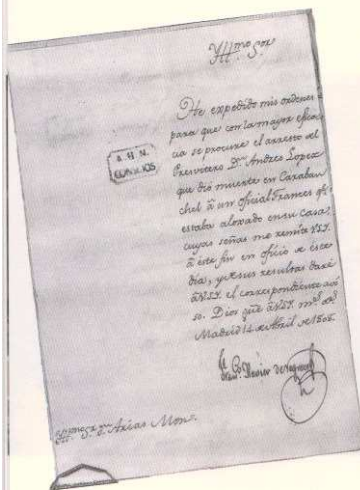 Yll.mo Sor
He expedido mis ordenes
para que con la mayor eficacia
cia se procure el arresto del
Presvitero Dn. Andres Lopez
que dió muerte en Caraban
chel â un oficial Frances qe.
estaba aloxado en su Casa,
cuyas señas me remite V.S.Y.
â este fin en oficio de este
dia, y de sus resultas daré
â V.S.Y. el correspondiente avi
so. Dios gue. â V.S.Y. ms. as.
Madrid 14 de Abril de 1808.
A. H. N.
CONSEJOS
Javier de Negrete
Arias Mon.